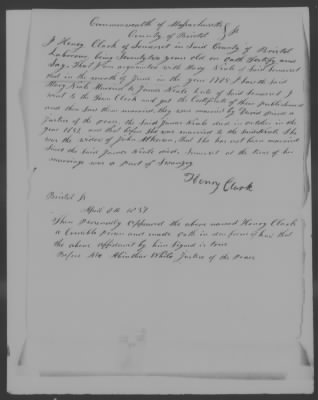 Commonwealth of Massachusetts
County of Bristol } ss
I Henry Clark of Somerset in Said County of Bristol
Laborer, being Seventy years old on Oath testify and
Say. That I am acquainted with Mary Keith of Said Somerset
that in the month of June in the year 1805, I saw the said
Mary Keith Married to James Keith late of Said Somerset I
went to the Town Clerk and got the Certificate of their publishment
and then Saw them married, they were married by David Pierce a
Justice of the peace, the Said James Keith died in October in the
year 1832, and that before She was married to the said Keith She
was the widow of John Atherson, that She has not been married
Since the Said James Keith died. Somerset at the time of her
marriage was a part of Swanzey
Henry Clark
Bristol ss
April 8th 1837
Then Personally Appeared the above named Henry Clark
a Credible Person and made Oath in due form of law that
the above affidavit by him Signed is true
Before Me Abiathar White Justice of the Peace